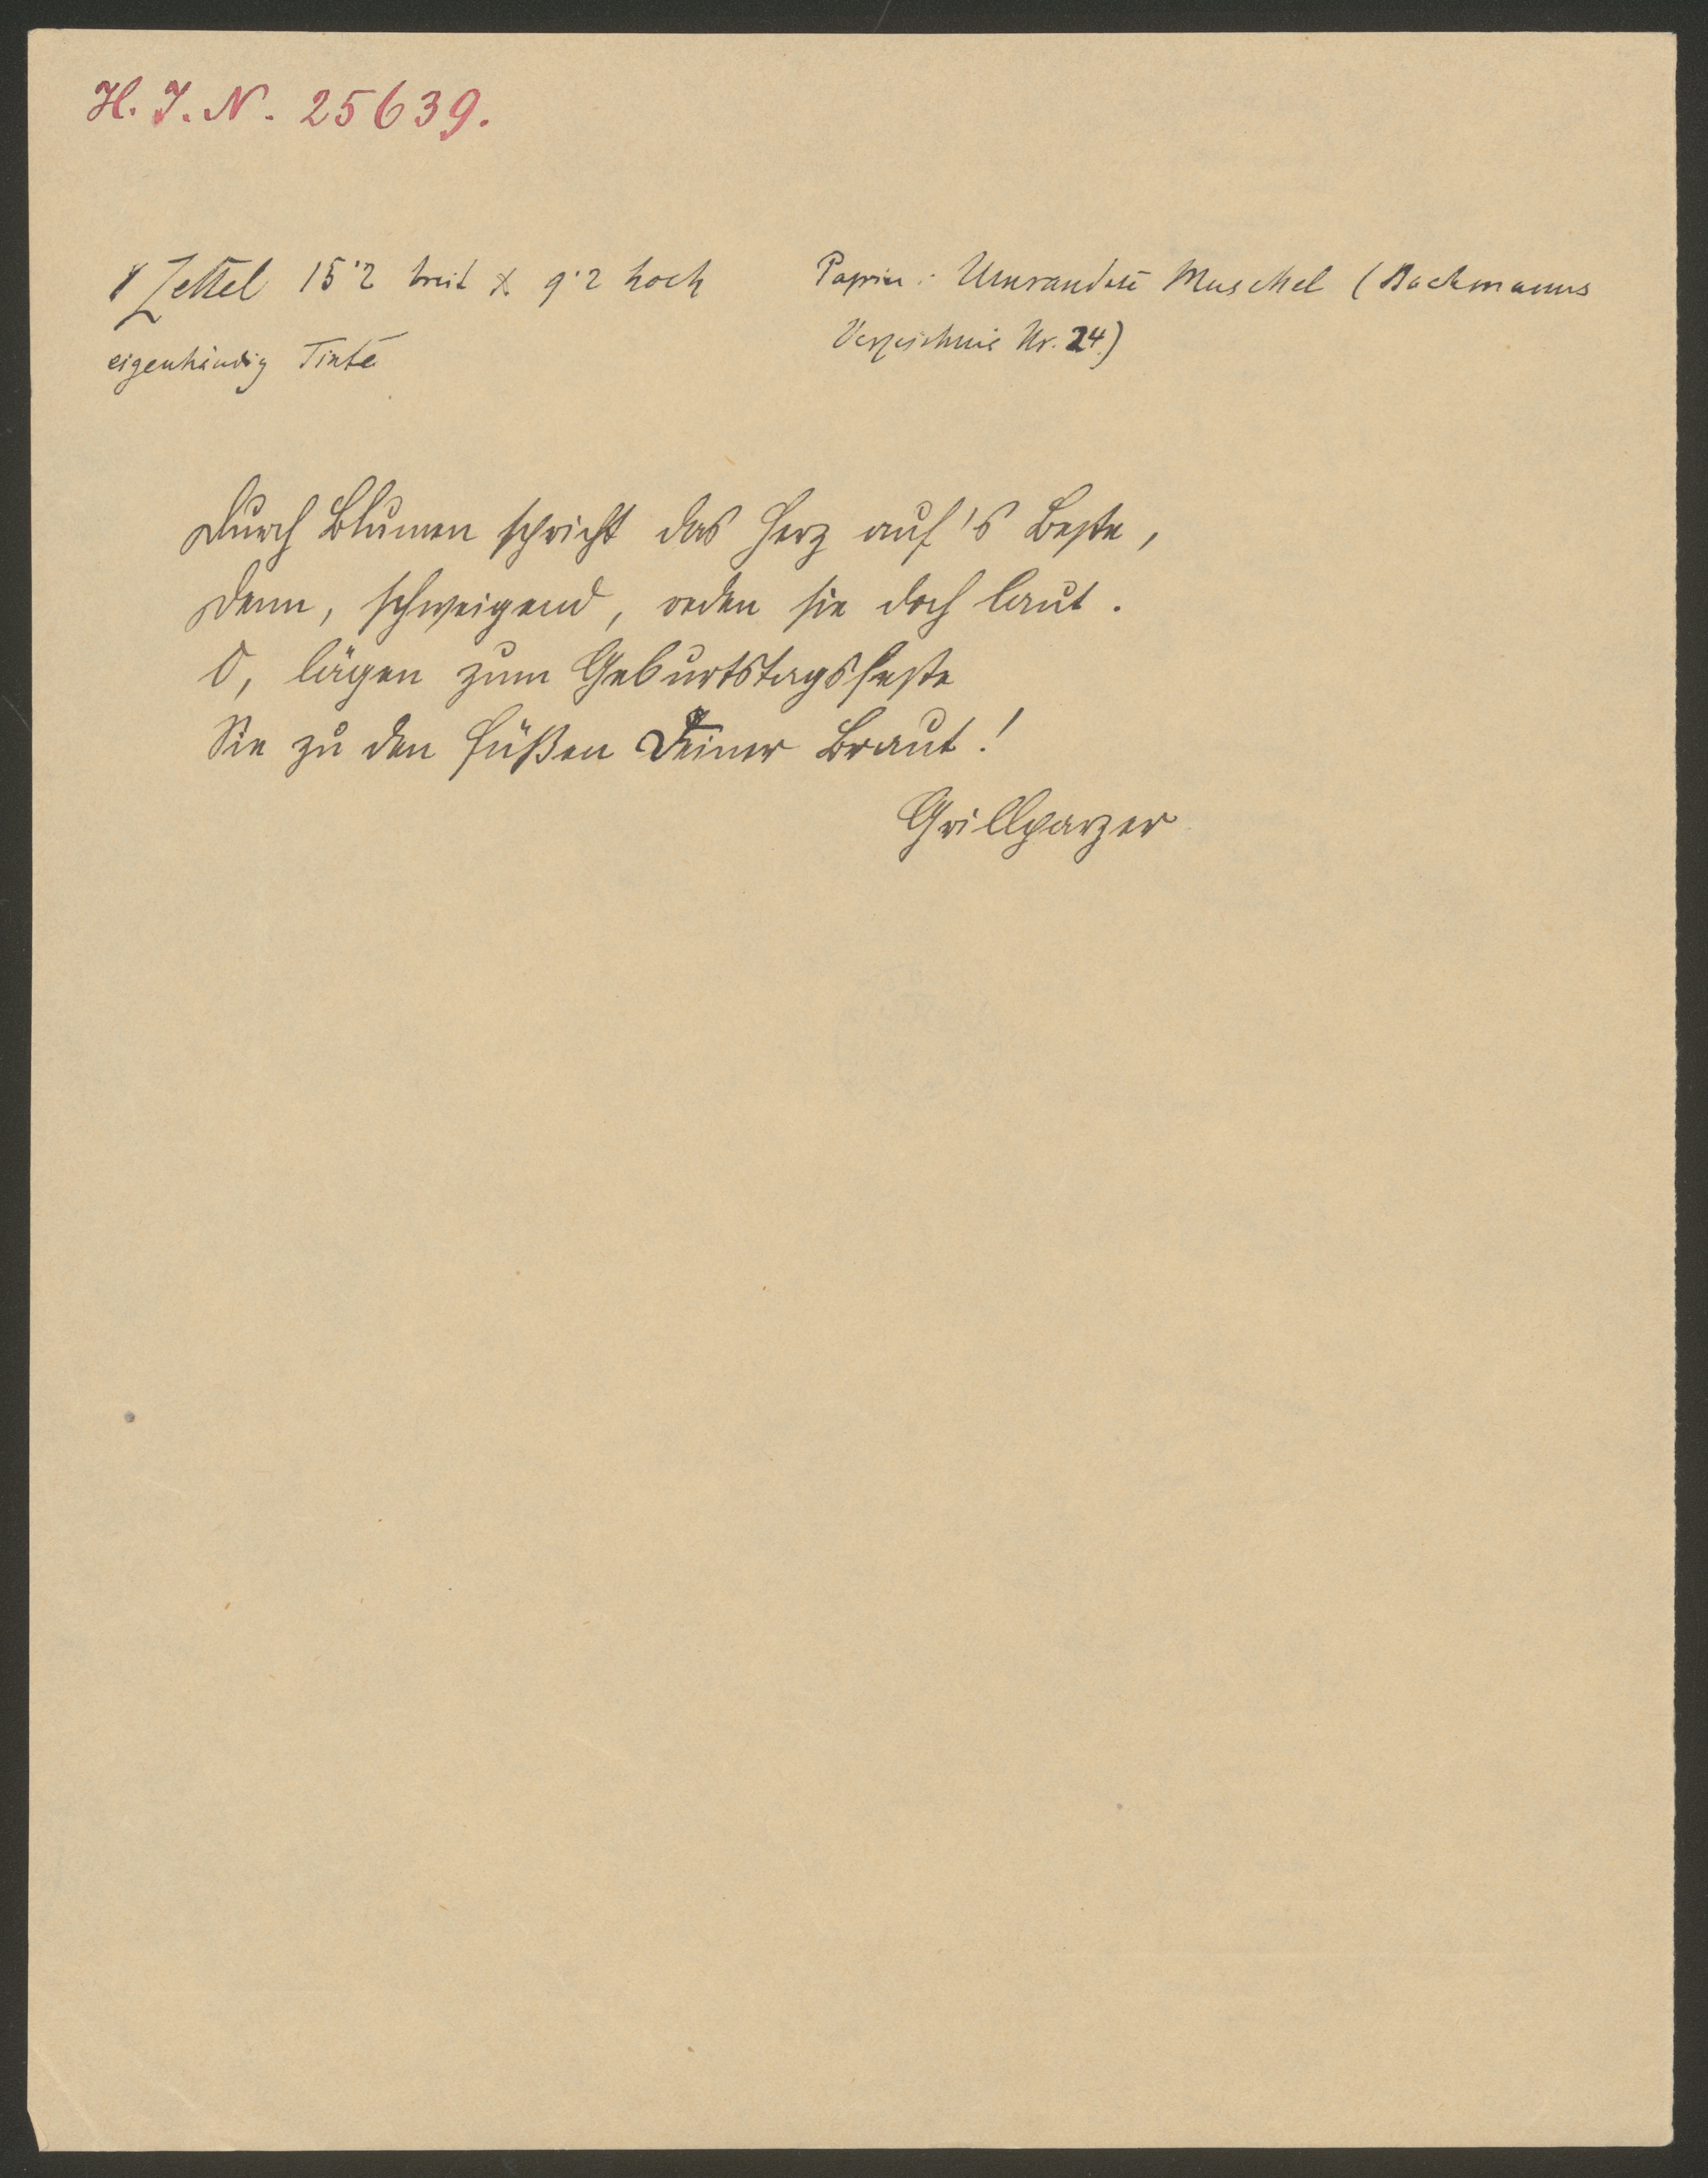 H. I. N. 25639.
1 Zettel 15·2 breit x 9·2 hoch
Papier: Umrandete Muschel (Backmanns
Verzeichnis Nr. 24)
eigenhändig Tinte
Durch Blumen spricht das Herz auf's Beste,
Denn, schweigend, reden sie doch laut.
O, lägen zum Geburtstagsfeste
Sie zu den Füßen Deiner Braut!
Grillparzer